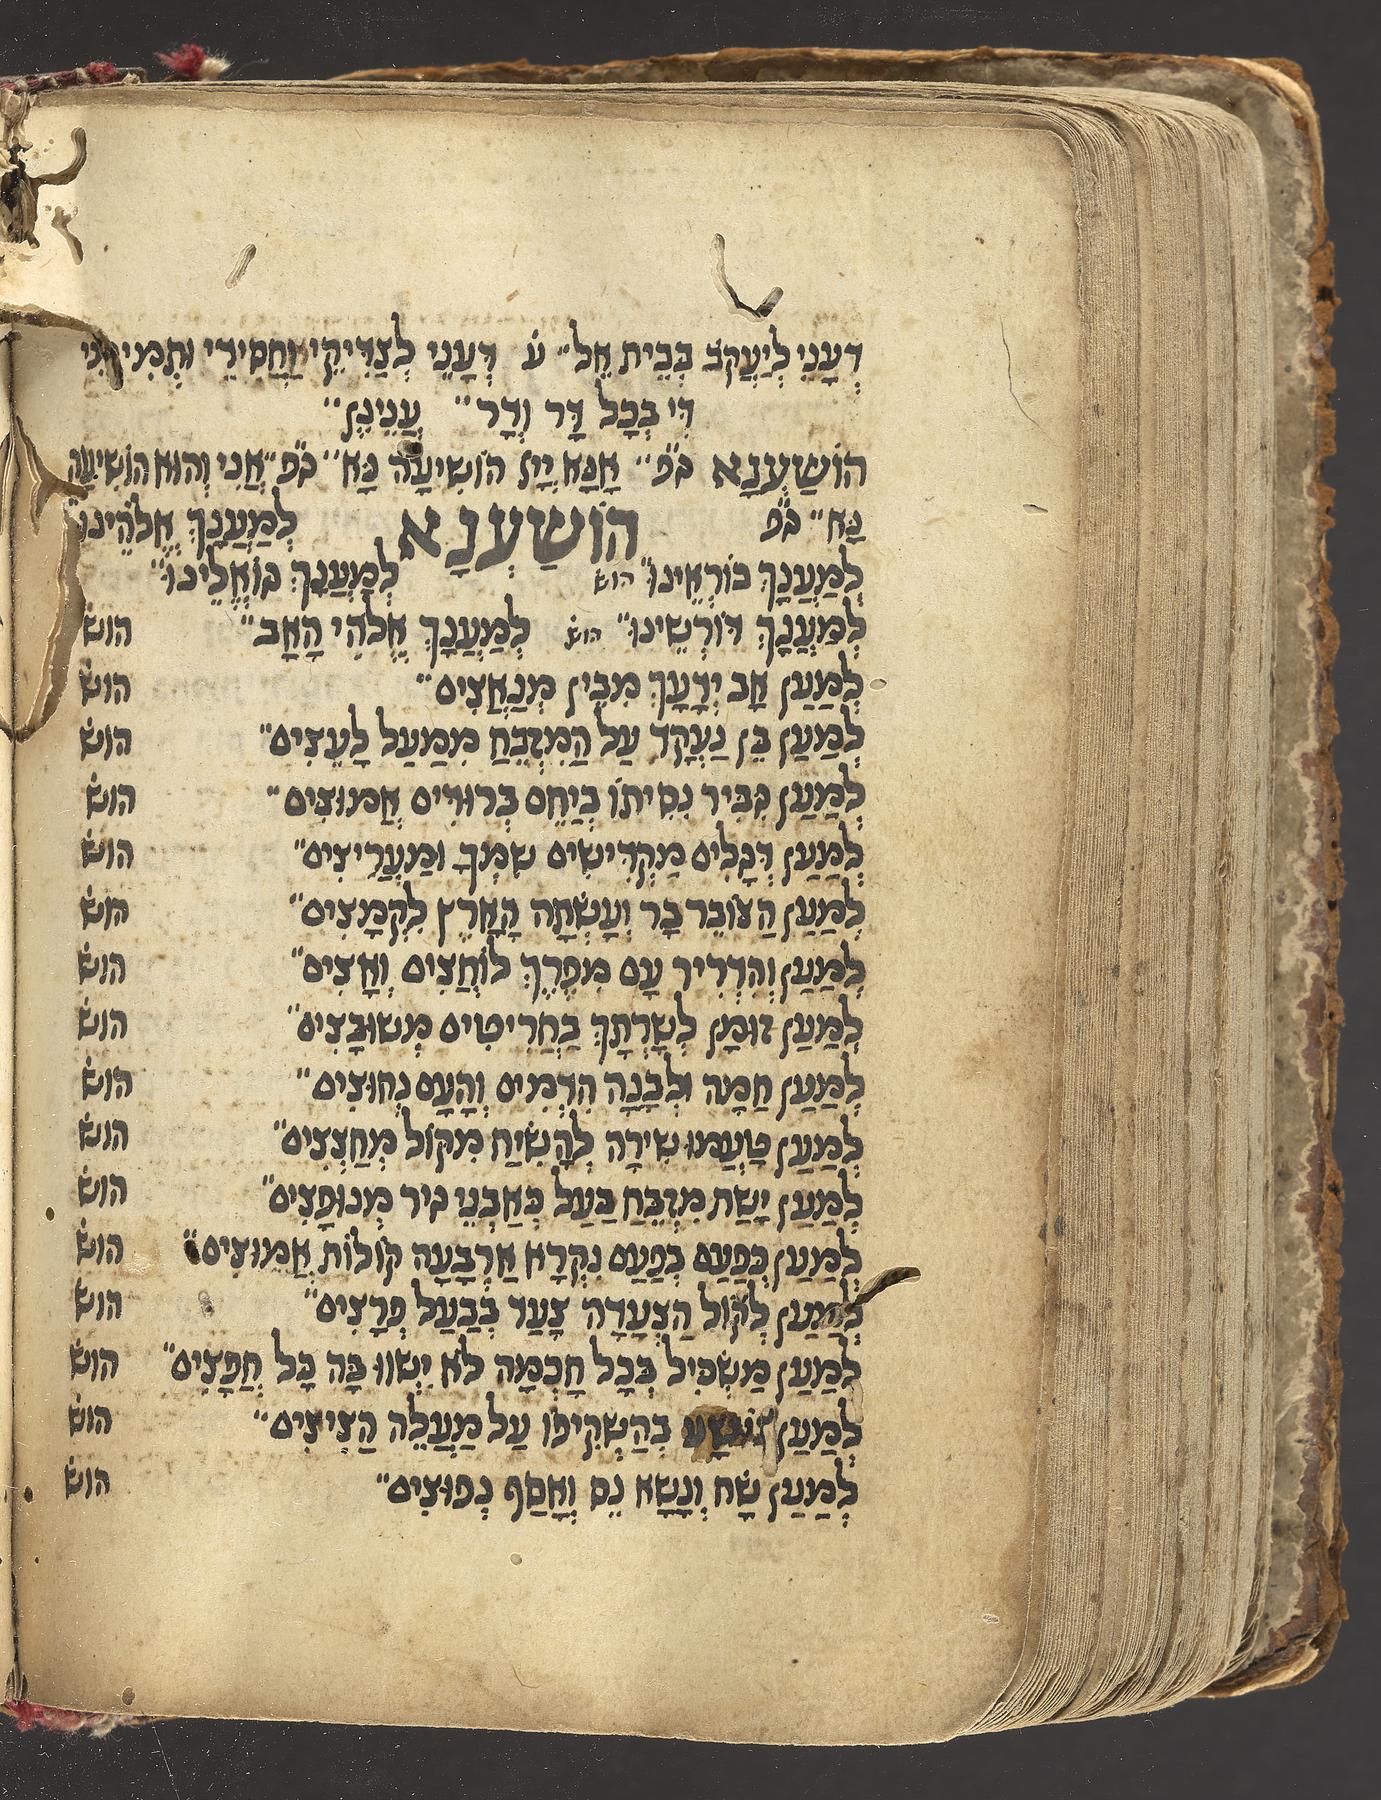 דְעָנֵי לְיַעֲקֹב בְּבֵית אֵל״ עֿ דְּעָנֵי לְצַדִּיקֵי וַחֲסִידֵי וּתְמִימֵי
דִּי בְּכָל דָּר וְדָר״ עֲנֵינָן״
הוֹשַׁעְנָא בֿפֿ״ אָנָּא יְיָ הוֹשִׁיעָה נָּא״ בֿפֿ״ אֲנִי וְהוּא הוֹשִׁיעָה
נָּא״ בֿפֿ הוֹשַׁעְנָא לְמַעֲנָךְ אֱלֹהֵינוּ
לְמַעֲנָךְ בּוֹרְאֵינוּ״ הוש לְמַעֲנָךְ גּוֹאֲלֵינוּ״
לְמַעֲנָךְ דּוֹרְשֵׁינוּ״ הוש לְמַעֲנָךְ אֱלֹהֵי הָאָב״ הוש
לְמַעַן אָב יְדָעָךְ מִבֵּין מְנַאֲצִים״ הוש
לְמַעַן בֵּן נַעְקַד עַל הַמִּזְבֵּחַ מִמַּעַל לָעֵצִים״ הוש
לְמַעַן גִּבִּיר נִסִּיתוֹ בְּיַחַס בְּרוּרִים אֲמוּצִים״ הוש
לְמַעַן דְּגָלִים מַקְדִּישִׁים שִׁמְךָ וּמַעֲרִיצִים״ הוש
לְמַעַן הַצּוֹבֵר בָּר וְעָשְׂתָה הָאָרֶץ לִקְמָצִים״ הוש
לְמַעַן וְהִדְרִיךְ עַם מִפֶּרֶךְ לוֹחֲצִים וְאָצִים״ הוש
לְמַעַן זוּמַּן לְשָׁרְתָךְ בַּחֲרִיטִים מְשׁוּבָּצִים״ הוש
לְמַעַן חַמָּה וּלְבָנָה הִדְמִים וְהָעָם נְחוּצִים״ הוש
לְמַעַן טָעֲמוּ שִׁירָה לְהָשִׂיחַ מִקּוֹל מְחַצְצִים״ הוש
לְמַעַן יָשַׁת מִזְבֵּחַ בַּעַל כְּאַבְנֵי גִיר מְנוּפָּצִים״ הוש
לְמַעַן כְּפַעַם בְּפַעַם נִקְרָא אַרְבָּעָה קוֹלוֹת אֲמוּצִים״ הוש
לְמַעַן לְקוֹל הַצְּעָדָה צָעַד בְּבַעַל פְּרָצִים״ הוש
לְמַעַן מַשְׂכִּיל בְּכָל חָכְמָה לֹא יִשְׁווּ בָּהּ כָּל חֲפָצִים״ הוש
לְמַעַן בְּהַשְׁקִיפוֹ עַל מַעֲלֵה הַצִּיצִים״ הוש
לְמַעַן שָׂח וְנָשָׂא נֵס וְאָסַף נְפוּצִים״ הוש